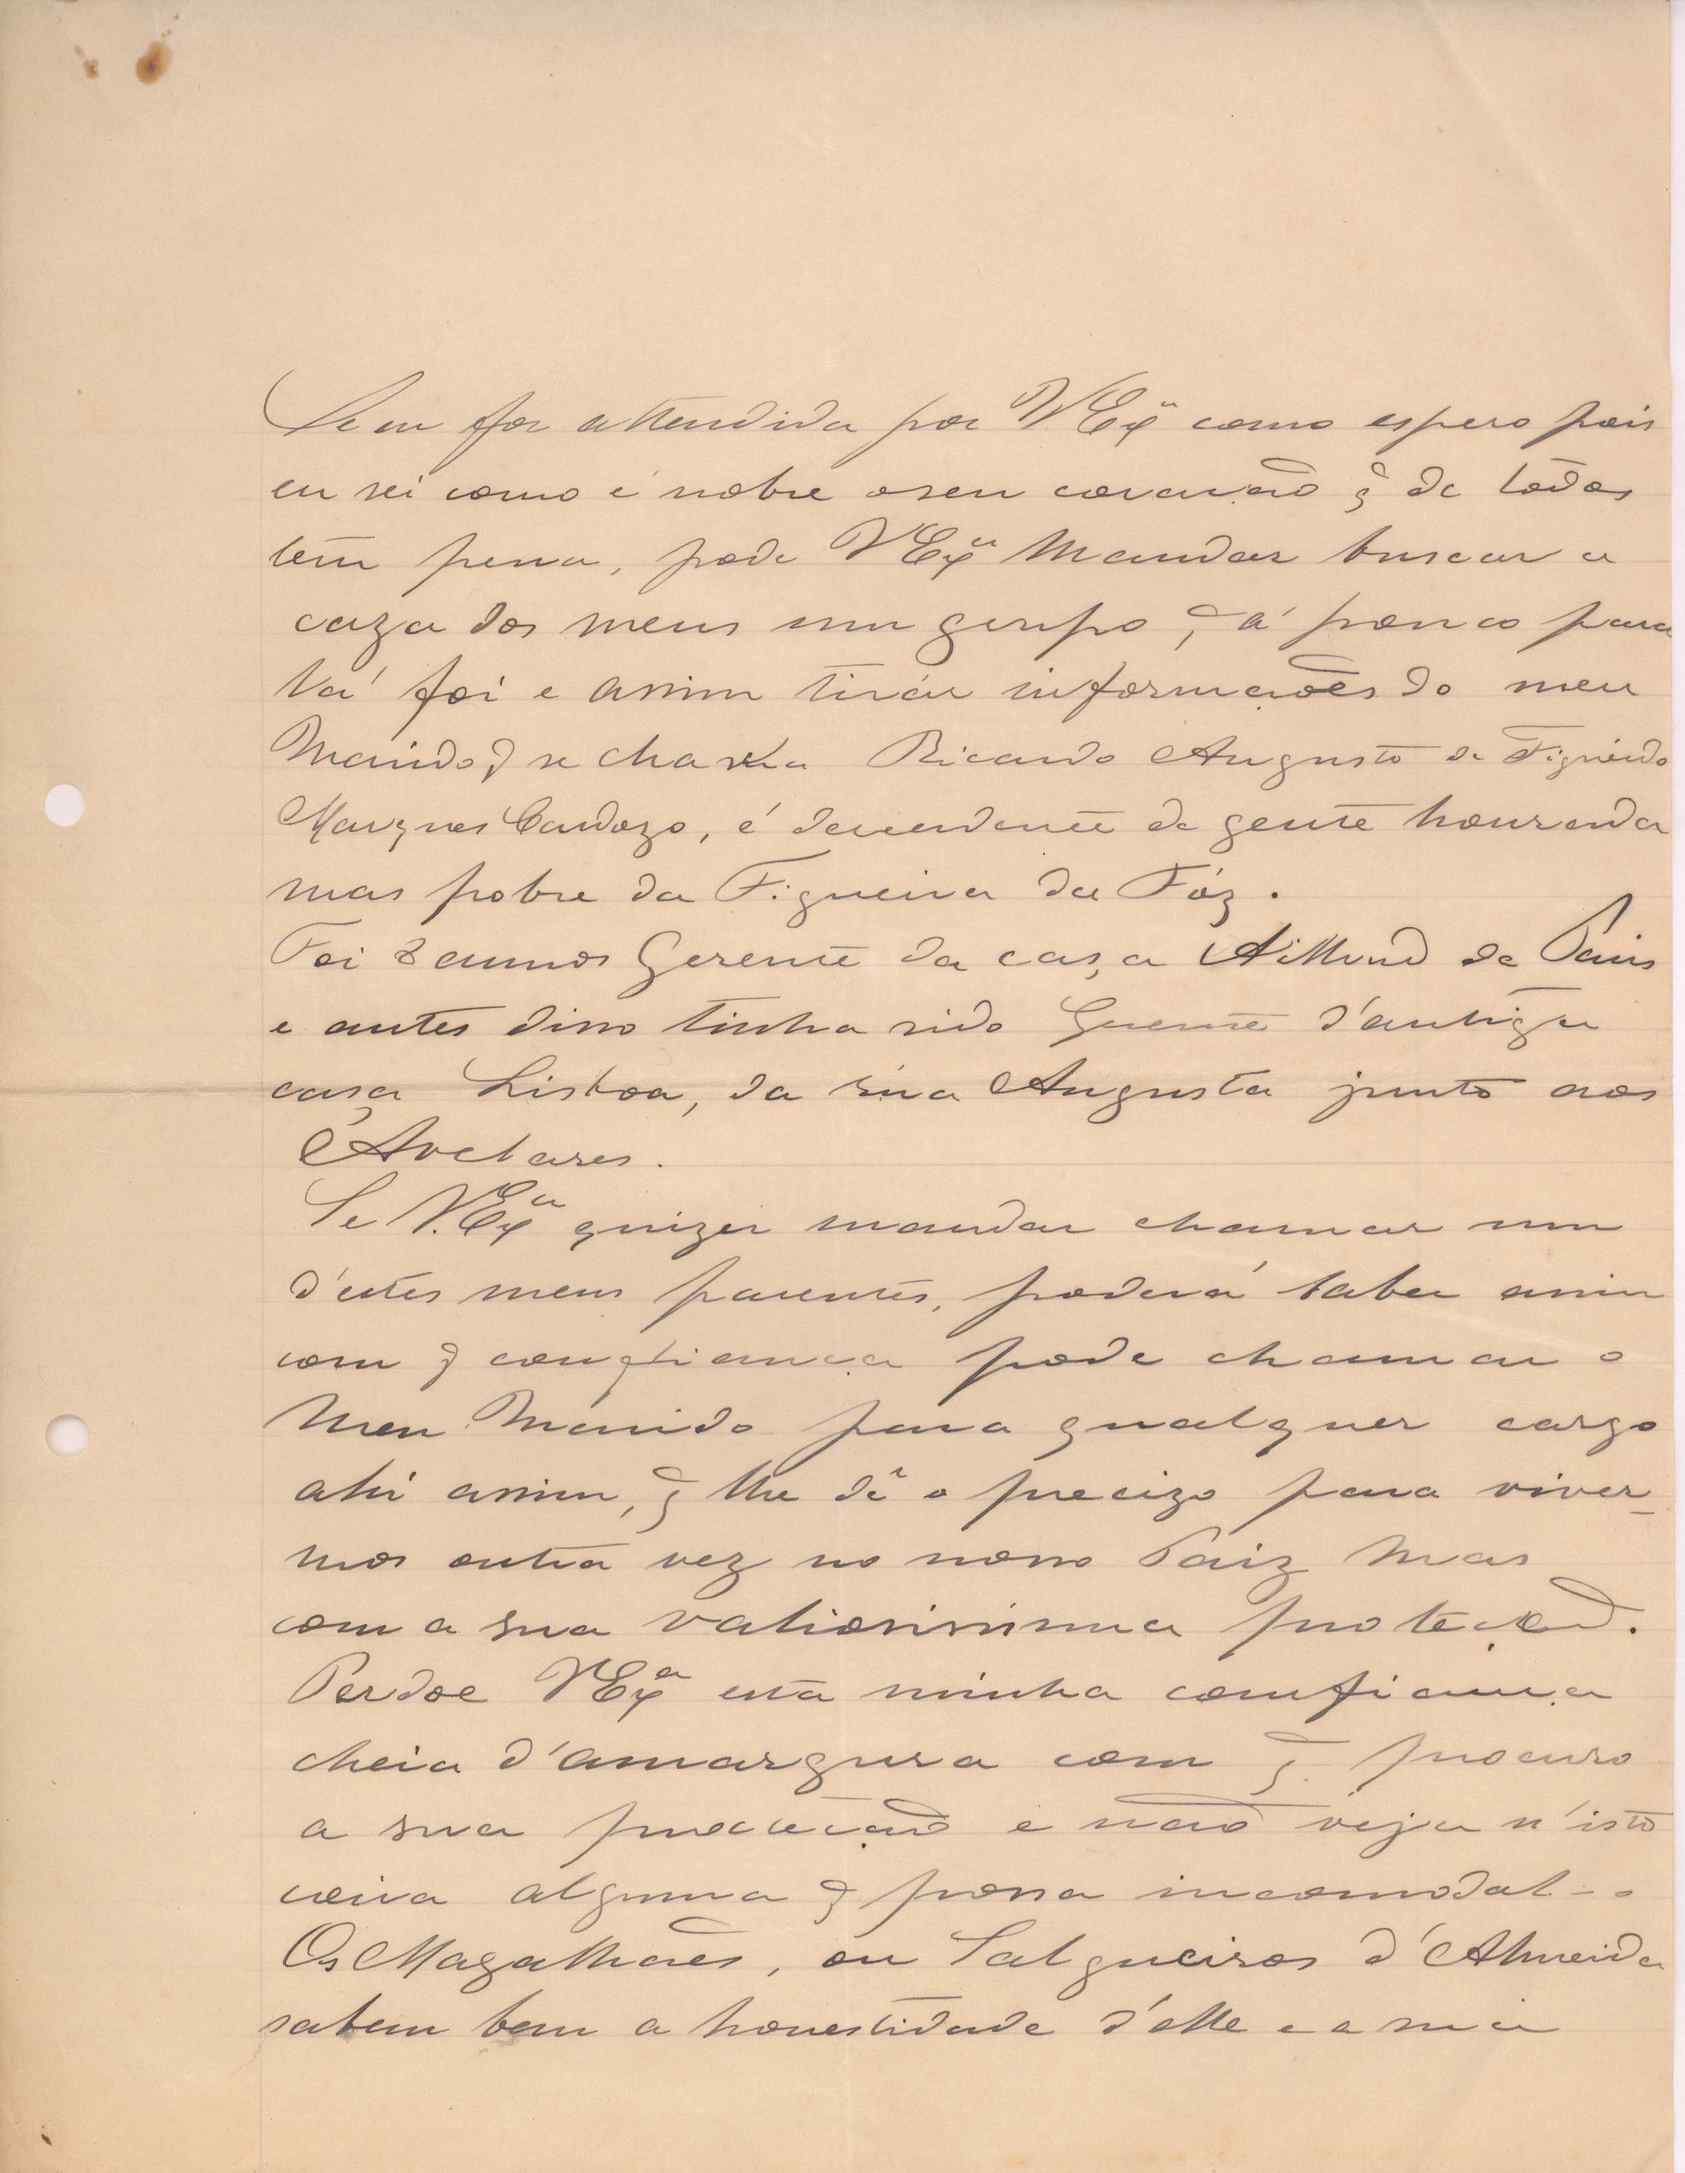 Se eu for attendida por V Exª como espero pois
eu sei como é nobre o seu coração q̃ de todos
tem pena, pode V Exª Mandar buscar a
caza dos meus um grupo, q̃ á pouco para
lá foi e assim tirár informações do meu
Marido q̃ se chama Ricardo Augusto de Figueirdo
Marques Cardozo, é descendente de gente honrada
mas pobre da Figueira da Fóz.
Foi 8 annos Gerente da casa Aillaud de Paris
e antes disso tinha sido Gerente d'antiga
casa Lisboa, da rua Augusta junto aos
Avelares.
Se V. Exª quizer mandar chamar um
d'estes meus parentes, poderá saber assim
com q̃ confiança pode chamar o
Meu Marido para qualquer cargo
ahi assim, q̃ lhe dê o precizo para viver-
mos outra vez no nosso Paiz Mas
com a sua valiosissima proteção.
Perdoe V Exª esta minha comfiança
cheia d'amargura com q̃ procuro
a sua protecção e não veja n'isto
coiza alguma q̃ possa incomodal-o
Os Magalhães, ou Salgueiros d'Almeida
sabem bem a honestidade d'elle e a mia